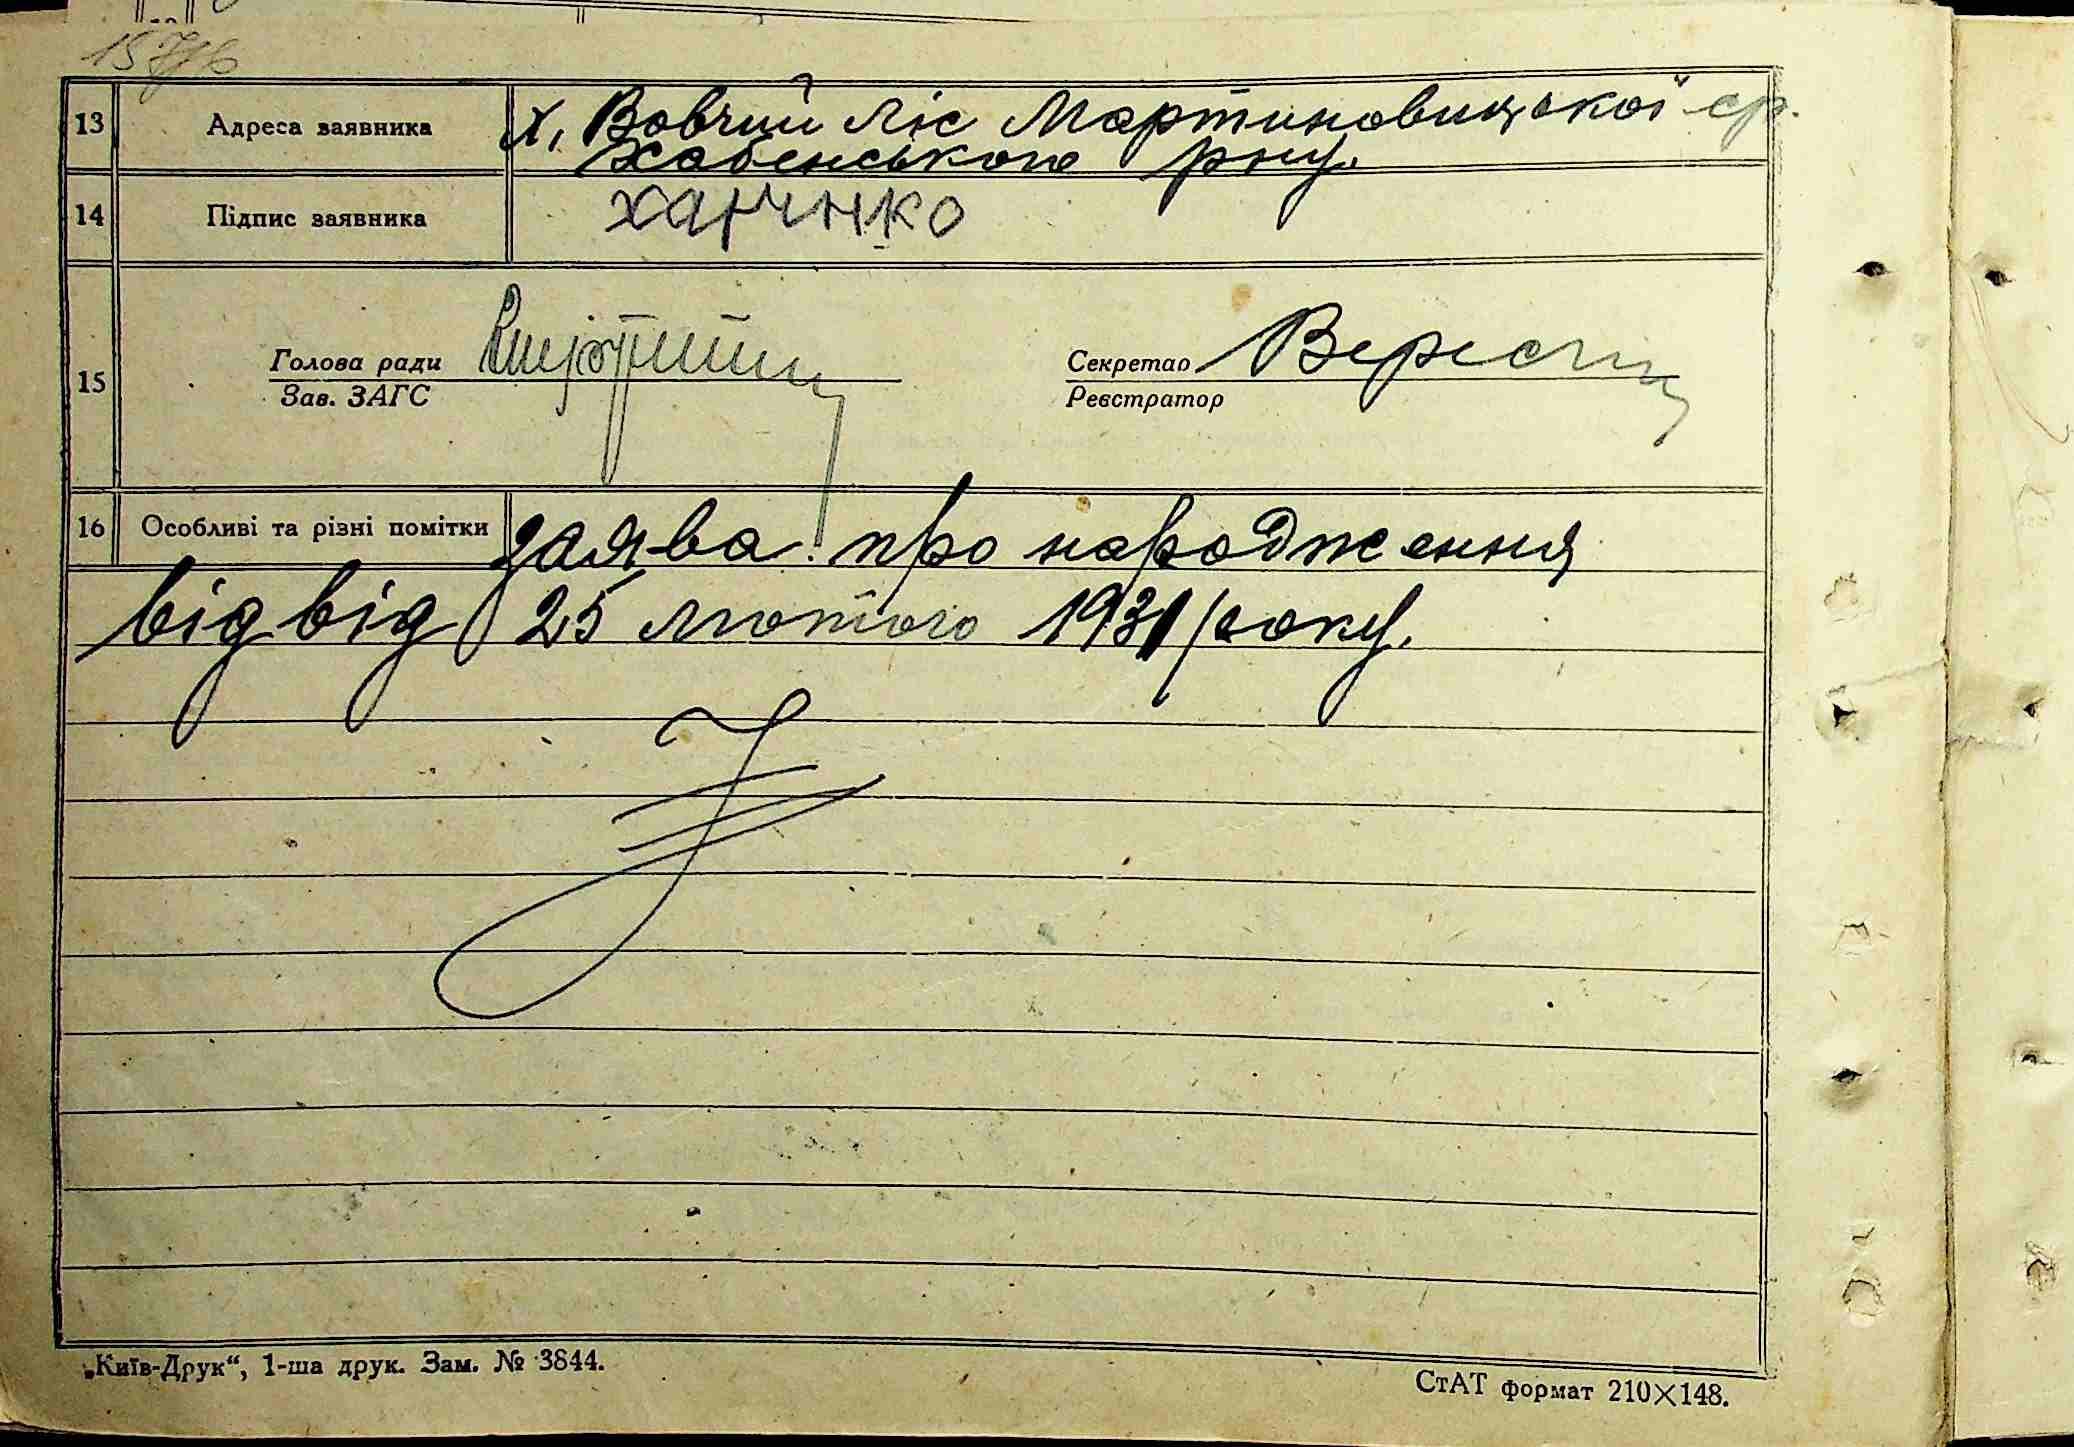 13 Адреса заявника х. Вовчий ліс Мартиновицької ср.
Хабенського рну.
14 Підпис заявника ханчнко
15 Голова ради Секретао Вересч
Зав. ЗАГС Реєстратор
16 Особливі та різні помітки заява про народження
від від 25 лютого 1931 року.
„Київ-Друк“, 1-ша друк. Зам. № 3844.
СтАТ формат 210×148.